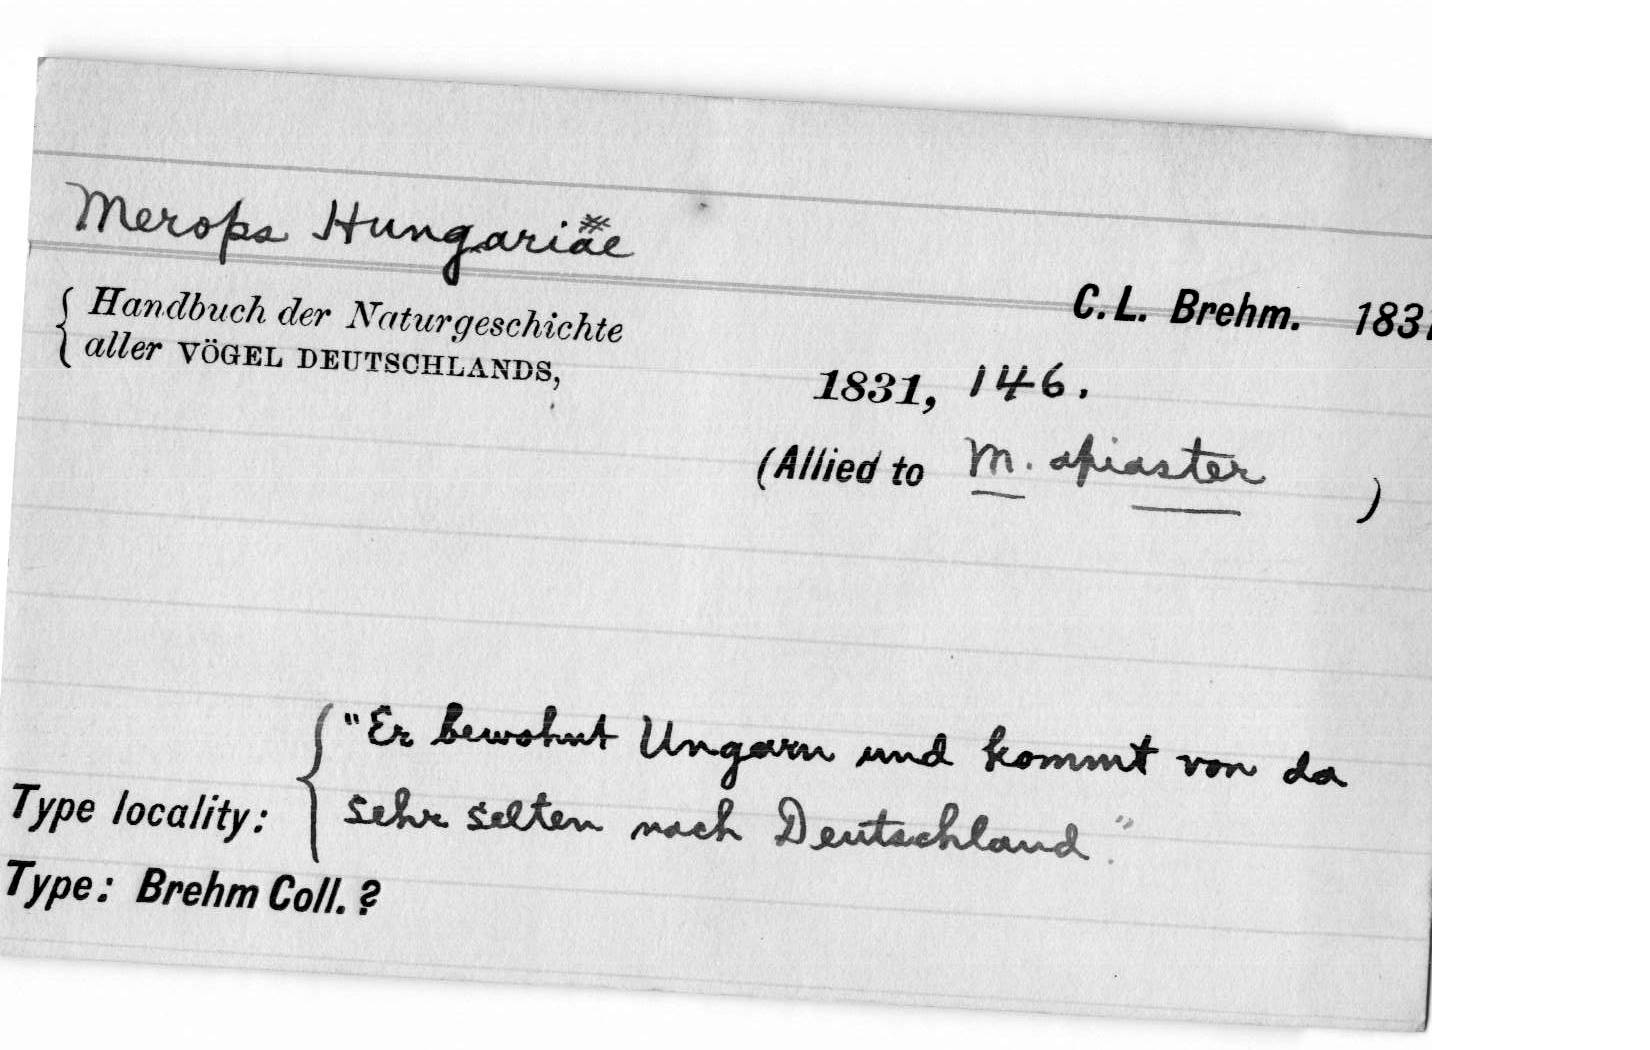 Merops Hungariae
C.L. Brehm. 1831
Handbuch der Naturgeschichte
aller VÖGEL DEUTSCHLANDS,
1831, 146.
(Allied to M. apiaster )
"Er bewohnt Ungarn und kommt von da
Type locality: sehr selten nach Deutschland."
Type: Brehm Coll. ?